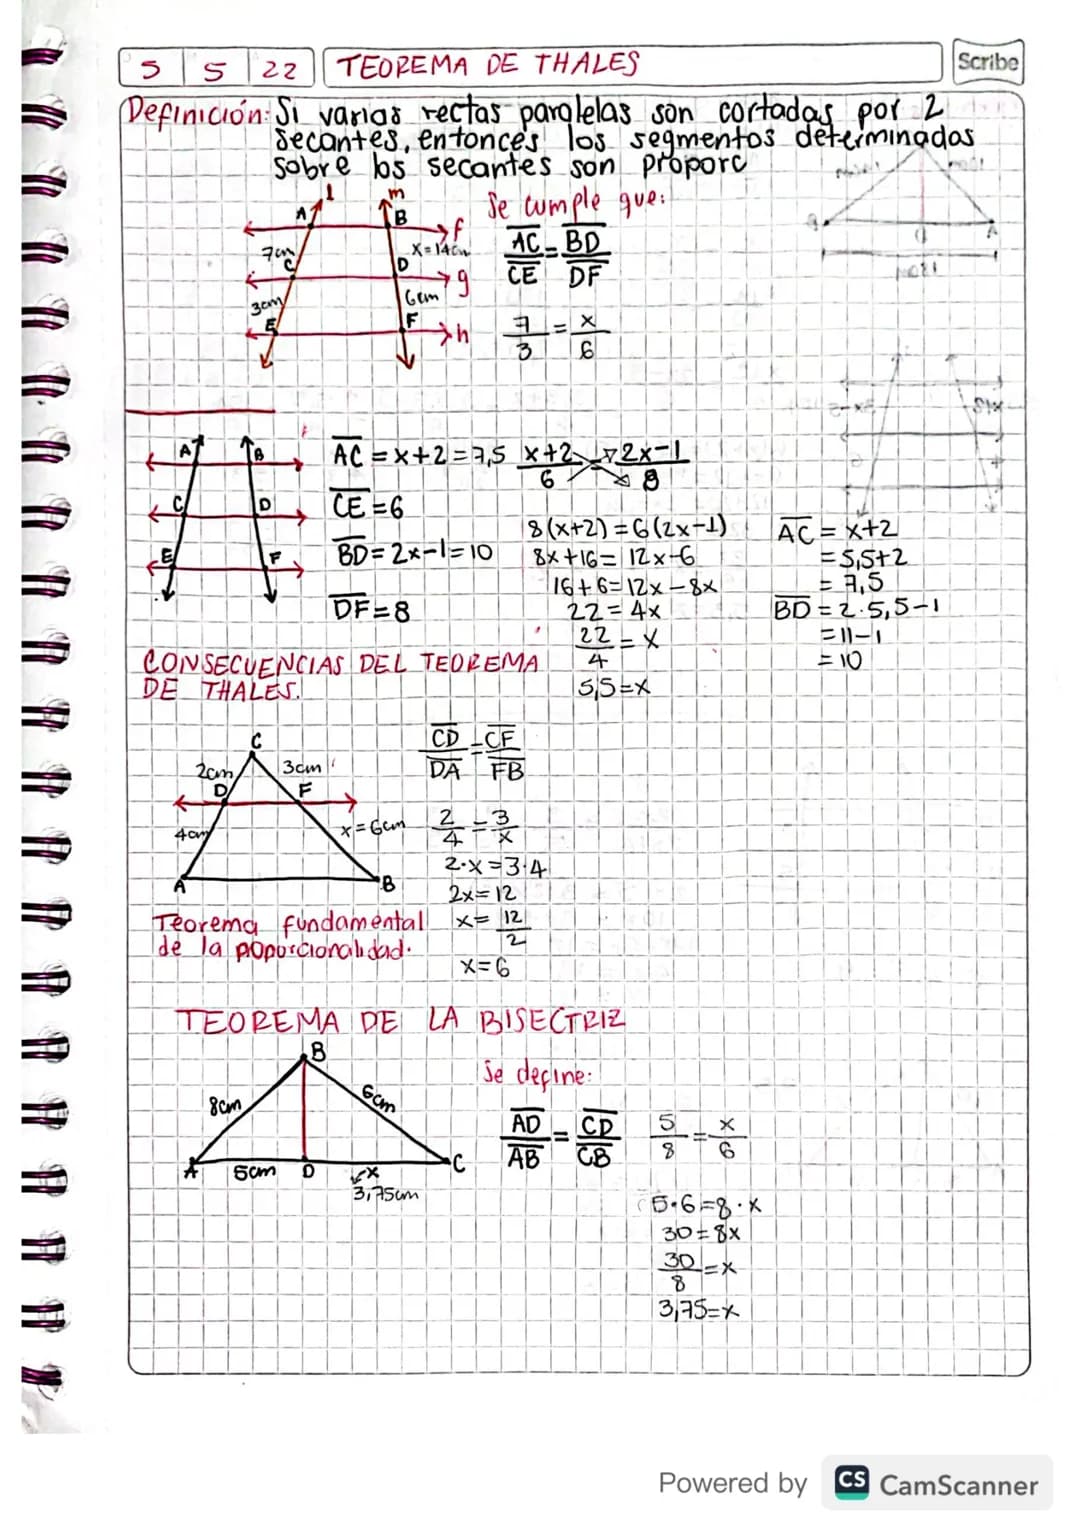 5 5 22 TEOREMA DE THALES Scribe
Definición: Si varias rectas paralelas son cortadas por 2
secantes, entonces los segmentos determinadas
sobre los secantes son proporc
l m Se cumple que:
A B f
7cm x=14cm AC/CE = BD/DF
C D g
3cm 6cm
E F h 7/3 = x/6
A B AC = x+2 = 7,5 (x+2)/6 = (2x-1)/8
C D CE = 6
8(x+2) = 6(2x-1) AC = x+2
E F BD = 2x-1 = 10 8x+16 = 12x-6 = 5,5+2
16+6 = 12x-8x = 7,5
DF = 8 22 = 4x BD = 2·5,5-1
22/4 = x = 11-1
5,5 = x = 10
CONSECUENCIAS DEL TEOREMA
DE THALES.
C CD/DA = CF/FB
2cm 3cm
D F
4cm x=6cm 2/4 = 3/x
2·x = 3·4
A B 2x = 12
Teorema fundamental x = 12/2
de la poporcionalidad.
x = 6
TEOREMA DE LA BISECTRIZ
B Se define:
8cm 6cm
AD/AB = CD/CB 5/8 = x/6
A 5cm D x C
3,75cm
5·6 = 8·x
30 = 8x
30/8 = x
3,75 = x
Powered by CS CamScanner